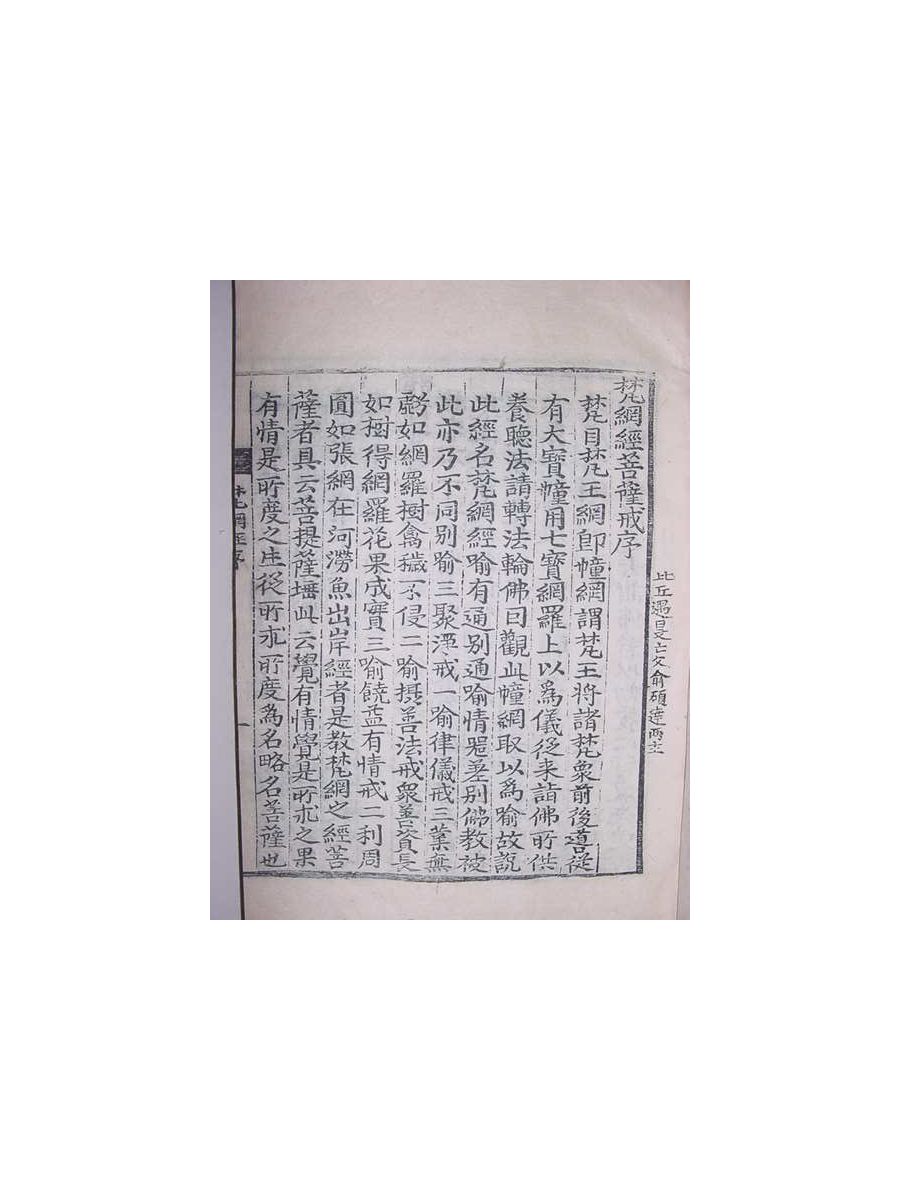 梵網經菩薩戒序
梵目梵王網即幢網謂梵王將諸梵衆前後導從
有大寶幢用七寶網羅上以爲儀從来詣佛所供
養聽法請轉法輪佛曰觀此幢網取以爲喻故說
此經名梵網經喻有通別通喻情器差別佛教被
此亦乃不同別喻三聚淨戒一喻律儀戒三業無
虧如網羅樹禽穢不侵二喻摂善法戒衆善資長
如樹得網羅花果成實三喻饒益有情戒二利周
圓如張網在河澇魚出岸經者是教梵網之經菩
薩者具云菩提薩埵此云覺有情覺是所求之果
有情是所度之生從所求所度爲名略名菩薩也
梵網經序
一
比丘